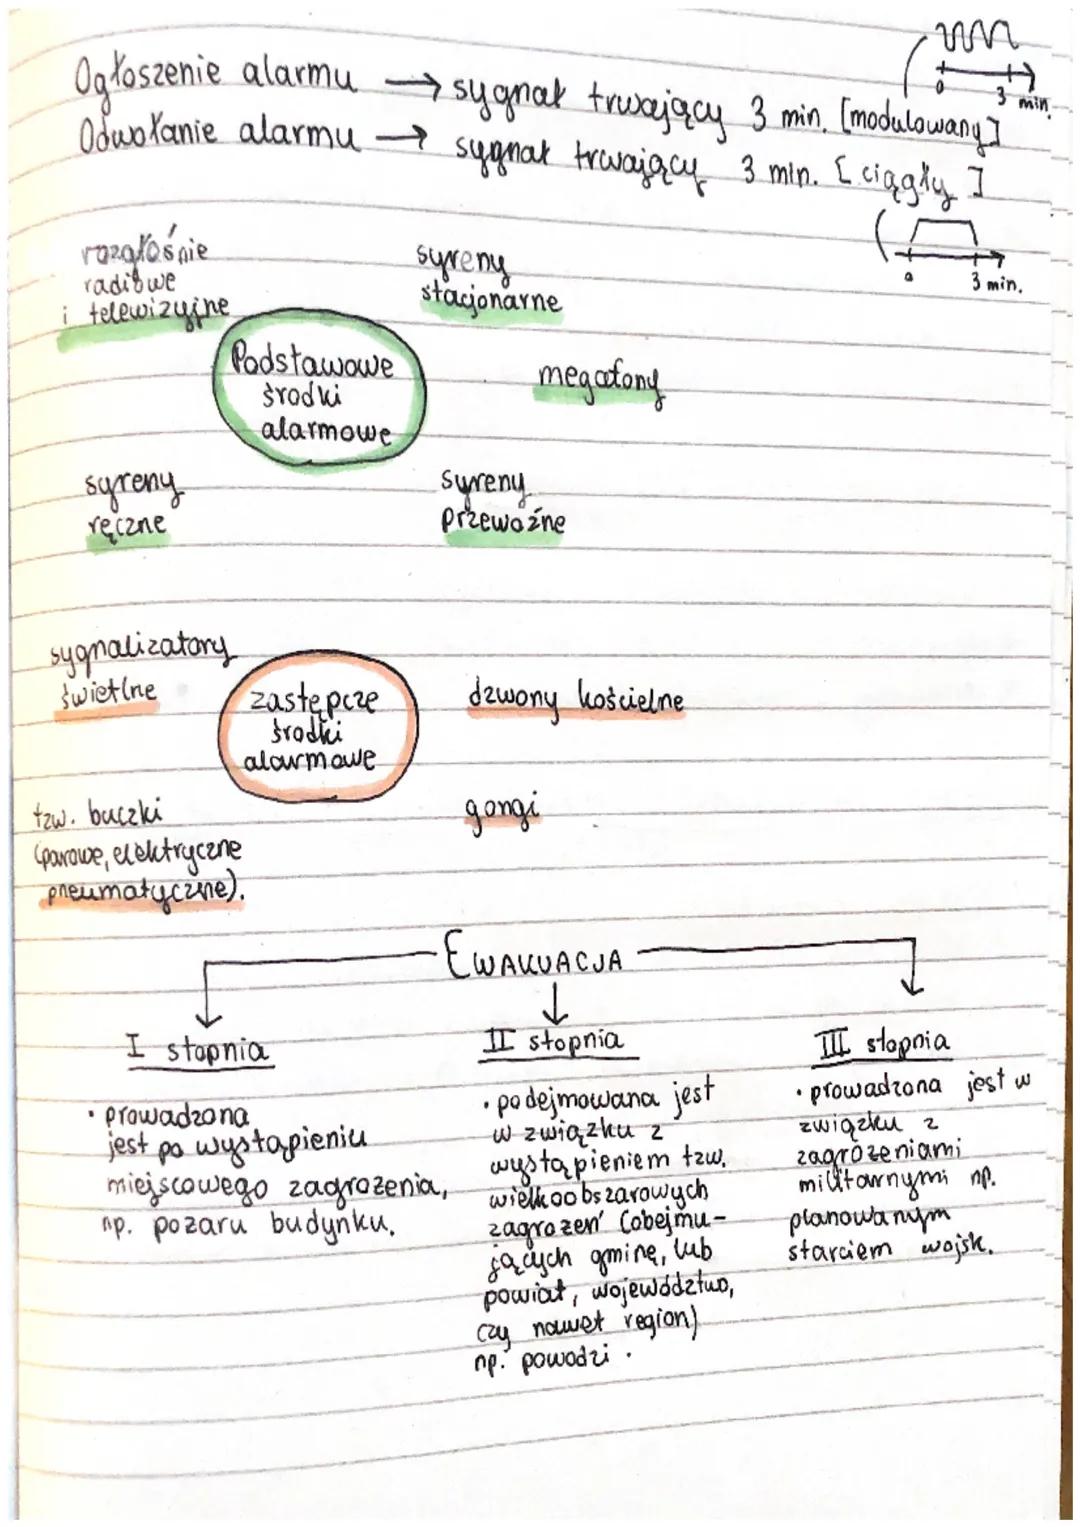 Ogłoszenie alarmu → sygnał trwający 3 min. [modulowany]
0 3 min.
Odwołanie alarmu → sygnał trwający 3 min. [ciągły]
0 3 min.
rozgłośnie
radiowe
i telewizyjne
syreny
stacjonarne
Podstawowe
środki
alarmowe
megafony
syreny
ręczne
syreny
przewoźne
sygnalizatory
świetlne
zastępcze
środki
alarmowe
dzwony kościelne
tzw. buczki
(parowe, elektryczne
pneumatyczne).
gongi
EWAKUACJA
I stopnia
• prowadzona
jest po wystąpieniu
miejscowego zagrożenia,
np. pożaru budynku.
II stopnia
• podejmowana jest
w związku z
wystąpieniem tzw.
wielkoobszarowych
zagrożeń (obejmu-
jących gminę, lub
powiat, województwo,
czy nawet region)
np. powodzi.
III stopnia
• prowadzona jest w
związku z
zagrożeniami
militarnymi np.
planowanym
starciem wojsk.